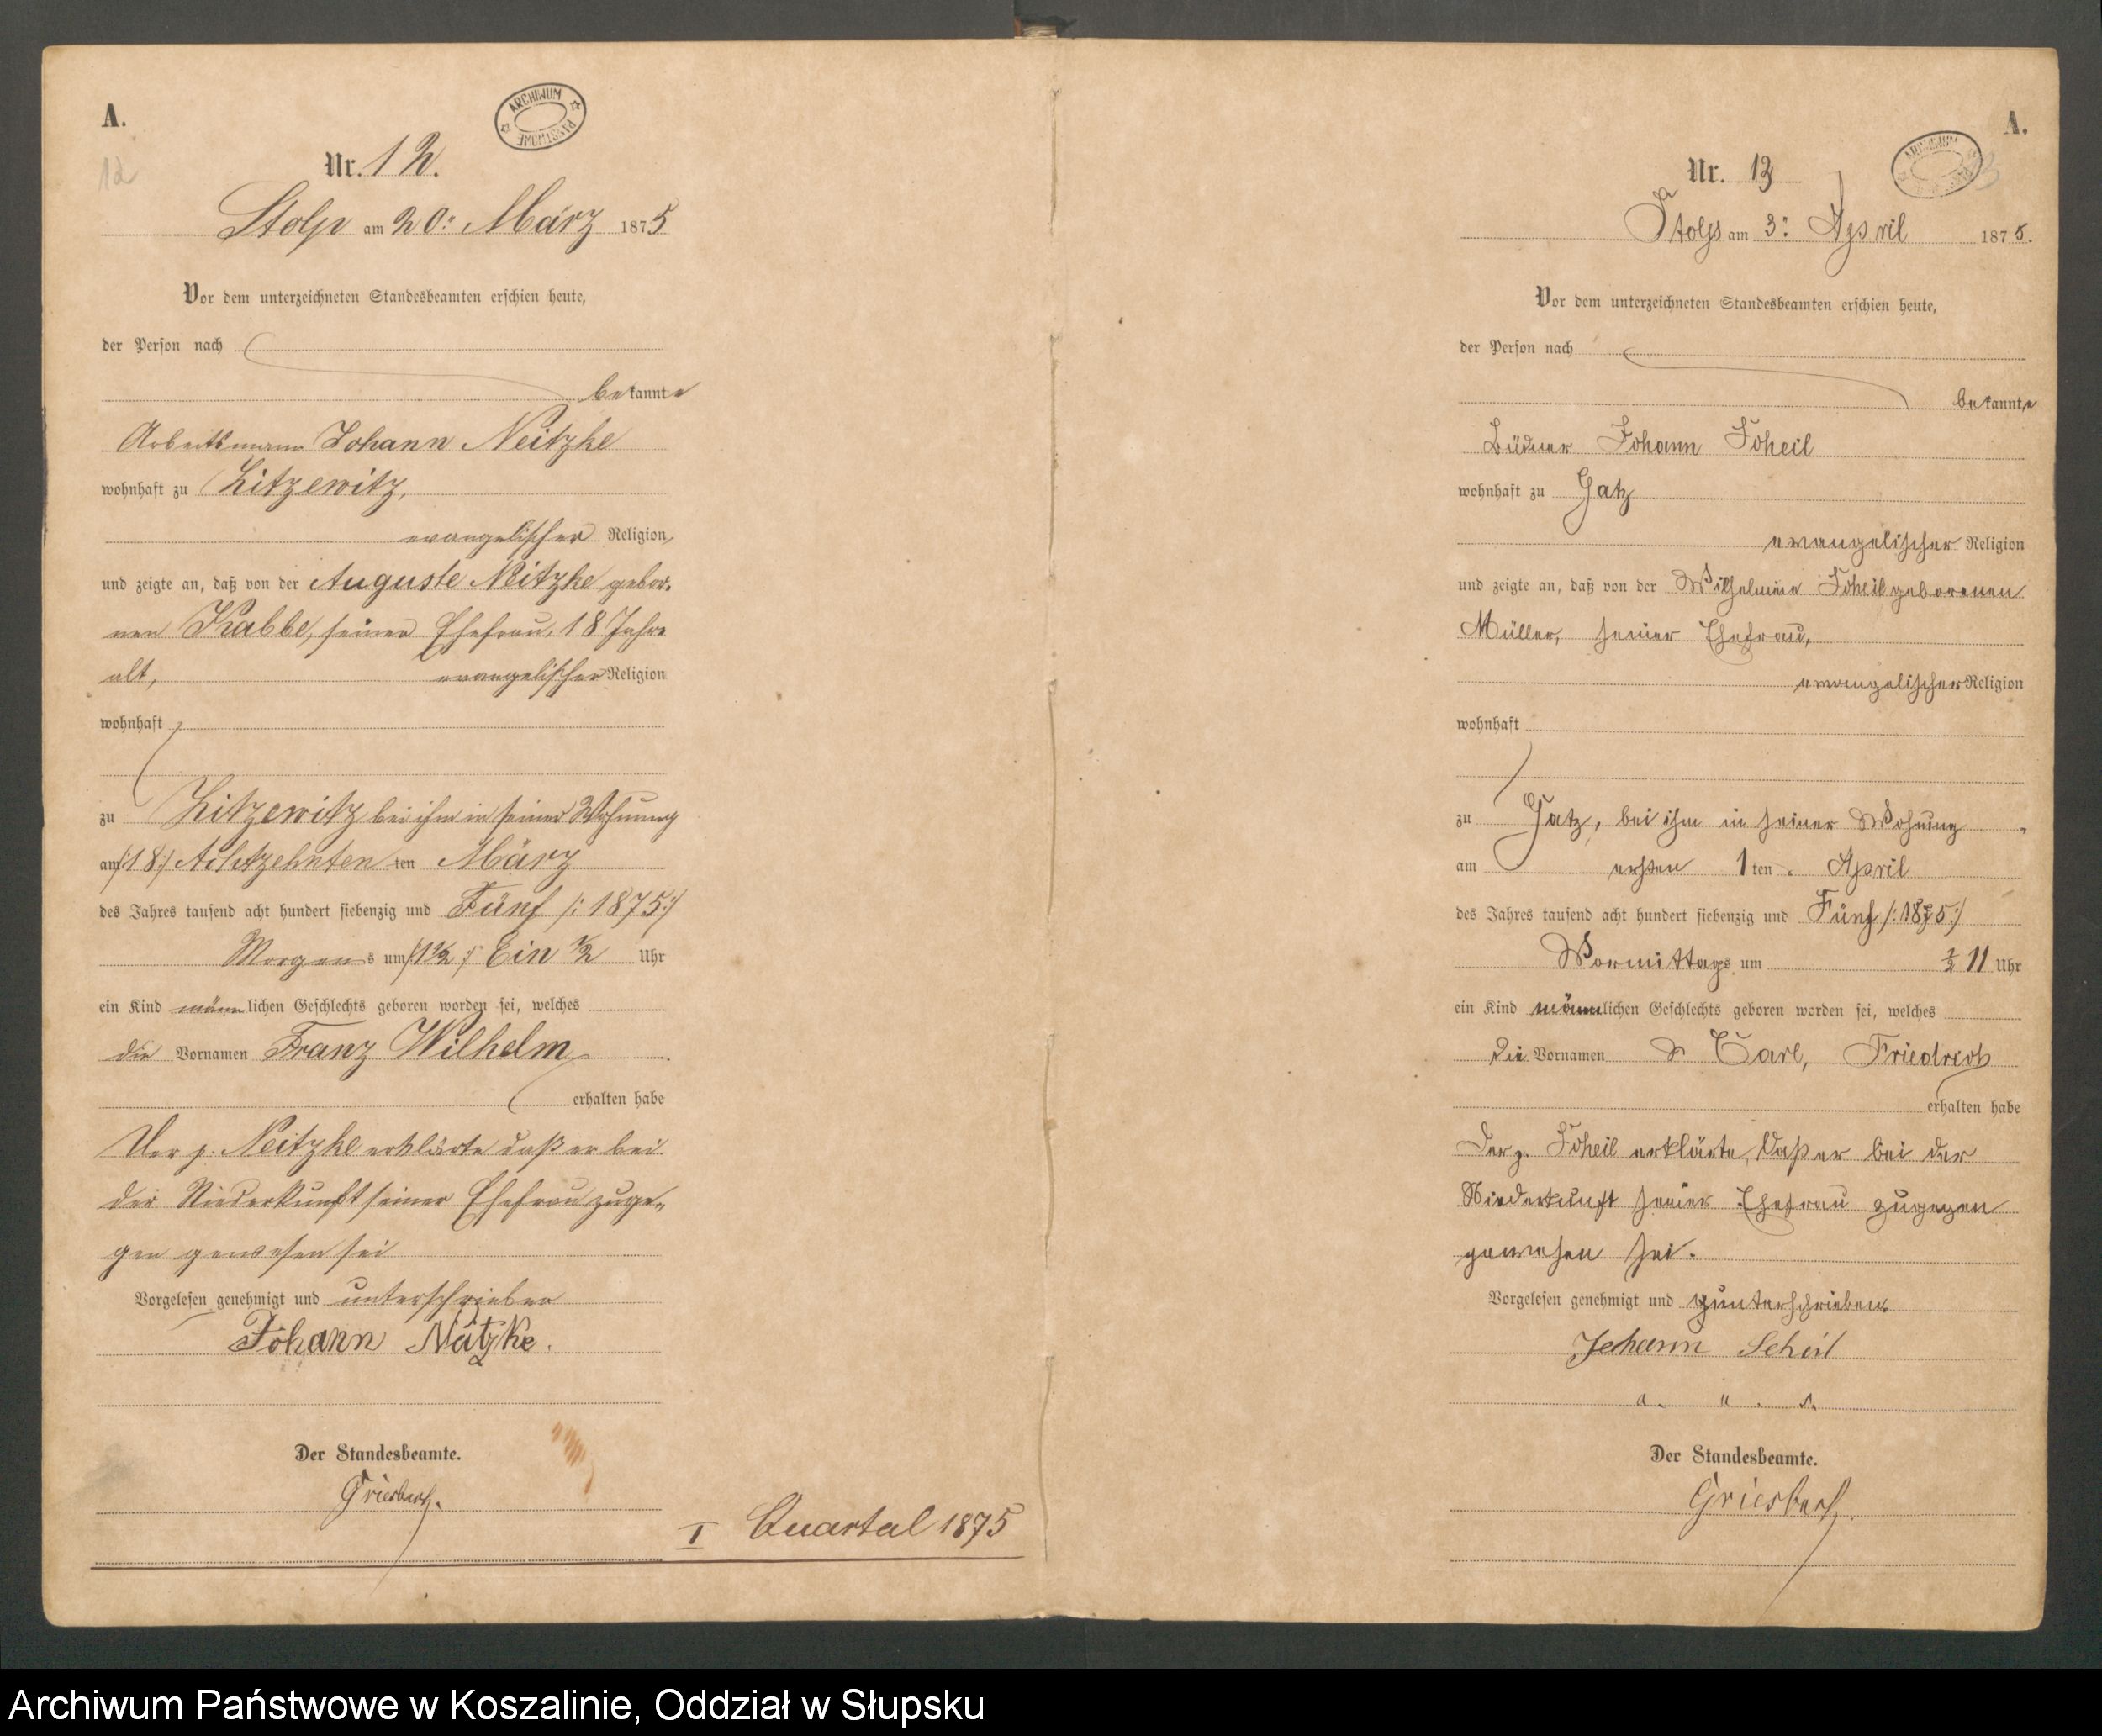 A.
ARCHIWUM PAŃSTWOWE
12
Nr. 12.
Stolp am 20: März 1875
Vor dem unterzeichneten Standesbeamten erschien heute,
der Person nach
bekannte
Arbeitsmann Johann Neitzke
wohnhaft zu Litzewitz,
evangelischer Religion,
und zeigte an, daß von der Auguste Neitzke gebor.
nen Krabbe, seiner Ehefrau, 18 Jahre
alt, evangelischer Religion
wohnhaft
zu Litzewitz bei ihm in seiner Wohnung
am /:18:/ Achtzehnten ten März
des Jahres tausend acht hundert siebenzig und Fünf /:1875:/
Morgens um /:1½:/ Ein ½ Uhr
ein Kind männlichen Geschlechts geboren worden sei, welches
die Vornamen Franz Wilhelm
erhalten habe
Der p. Neitzke erklärte daß er bei
der Niederkunft seiner Ehefrau zuge-
gen gewesen sei
Vorgelesen genehmigt und unterschrieben
Johann Neitzke.
Der Standesbeamte.
Griesbach.
I Quartal 1875
A.
ARCHIWUM PAŃSTWOWE
Nr. 13
Stolp am 3: April 1875.
Vor dem unterzeichneten Standesbeamten erschien heute,
der Person nach
bekannte
Büdner Johann Scheil
wohnhaft zu Gatz
evangelischer Religion
und zeigte an, daß von der Wilhelmine Scheil geborenen
Müller, seiner Ehefrau,
evangelischer Religion
wohnhaft
zu Gatz, bei ihm in seiner Wohnung
am ersten 1 ten April
des Jahres tausend acht hundert siebenzig und Fünf /:1875:/
Vormittags um ½ 11 Uhr
ein Kind männlichen Geschlechts geboren worden sei, welches
die Vornamen Carl, Friedrich
erhalten habe
Der p. Scheil erklärte, daß er bei der
Niederkunft seiner Ehefrau zugegen
gewesen sei.
Vorgelesen genehmigt und unterschrieben.
Johann Scheil
a. u. s.
Der Standesbeamte.
Griesbach.
Archiwum Państwowe w Koszalinie, Oddział w Słupsku